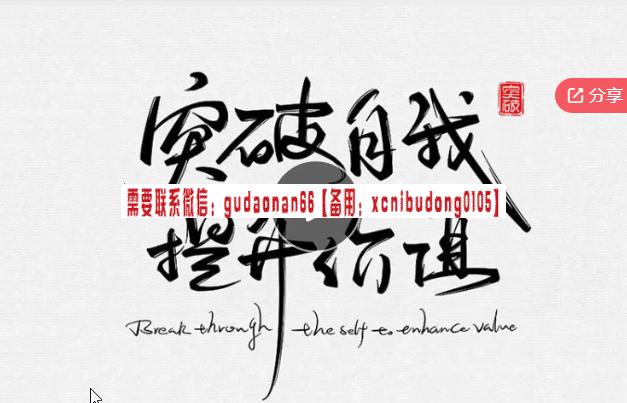 突破自我
突破
分享
需要联系微信：gudaonan66【备用：xcnibudong0105】
提升价值
Break through the self to enhance value